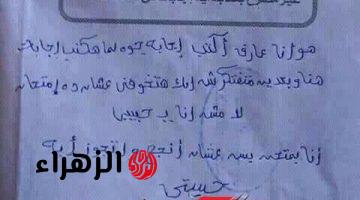 هو أنا عارف أكتب إجابة جوه لما هكتب إجابة
هنا وبعدين متفتكرش إنك هتخوفنى عشان ده إمتحان
لا مش أنا يا حبيبى
أنا بمتحن بس عشان أنجح و اتجوز أية
حبيبتى
الزهراء